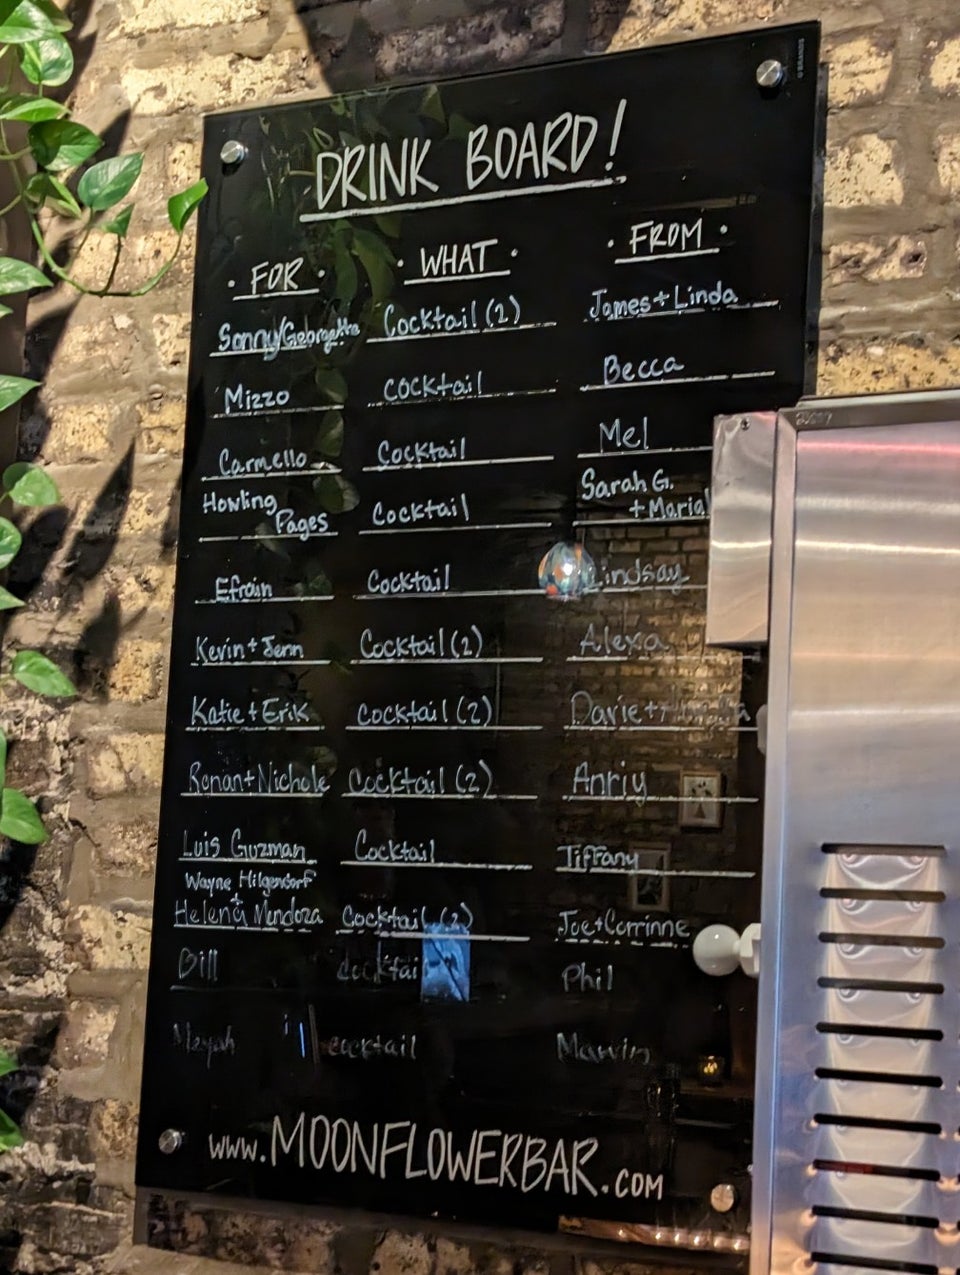 DRINK BOARD!
· FOR · · WHAT · · FROM ·
Sonny/Georgette Cocktail (2) James + Linda
Mizzo cocktail Becca
Carmello Cocktail Mel
Howling Pages Cocktail Sarah G. + Maria
Efrain Cocktail Lindsay
Kevin + Jenn Cocktail (2) Alexa
Katie + Erik Cocktail (2)
Ronan + Nichole Cocktail (2) Anriy
Luis Guzman Cocktail Tiffany
Wayne Hilgendorf
+
Helena Mendoza Cocktail (2) Joe + Corrinne
Bill cocktail Phil
cocktail Marvin
www.MOONFLOWERBAR.com